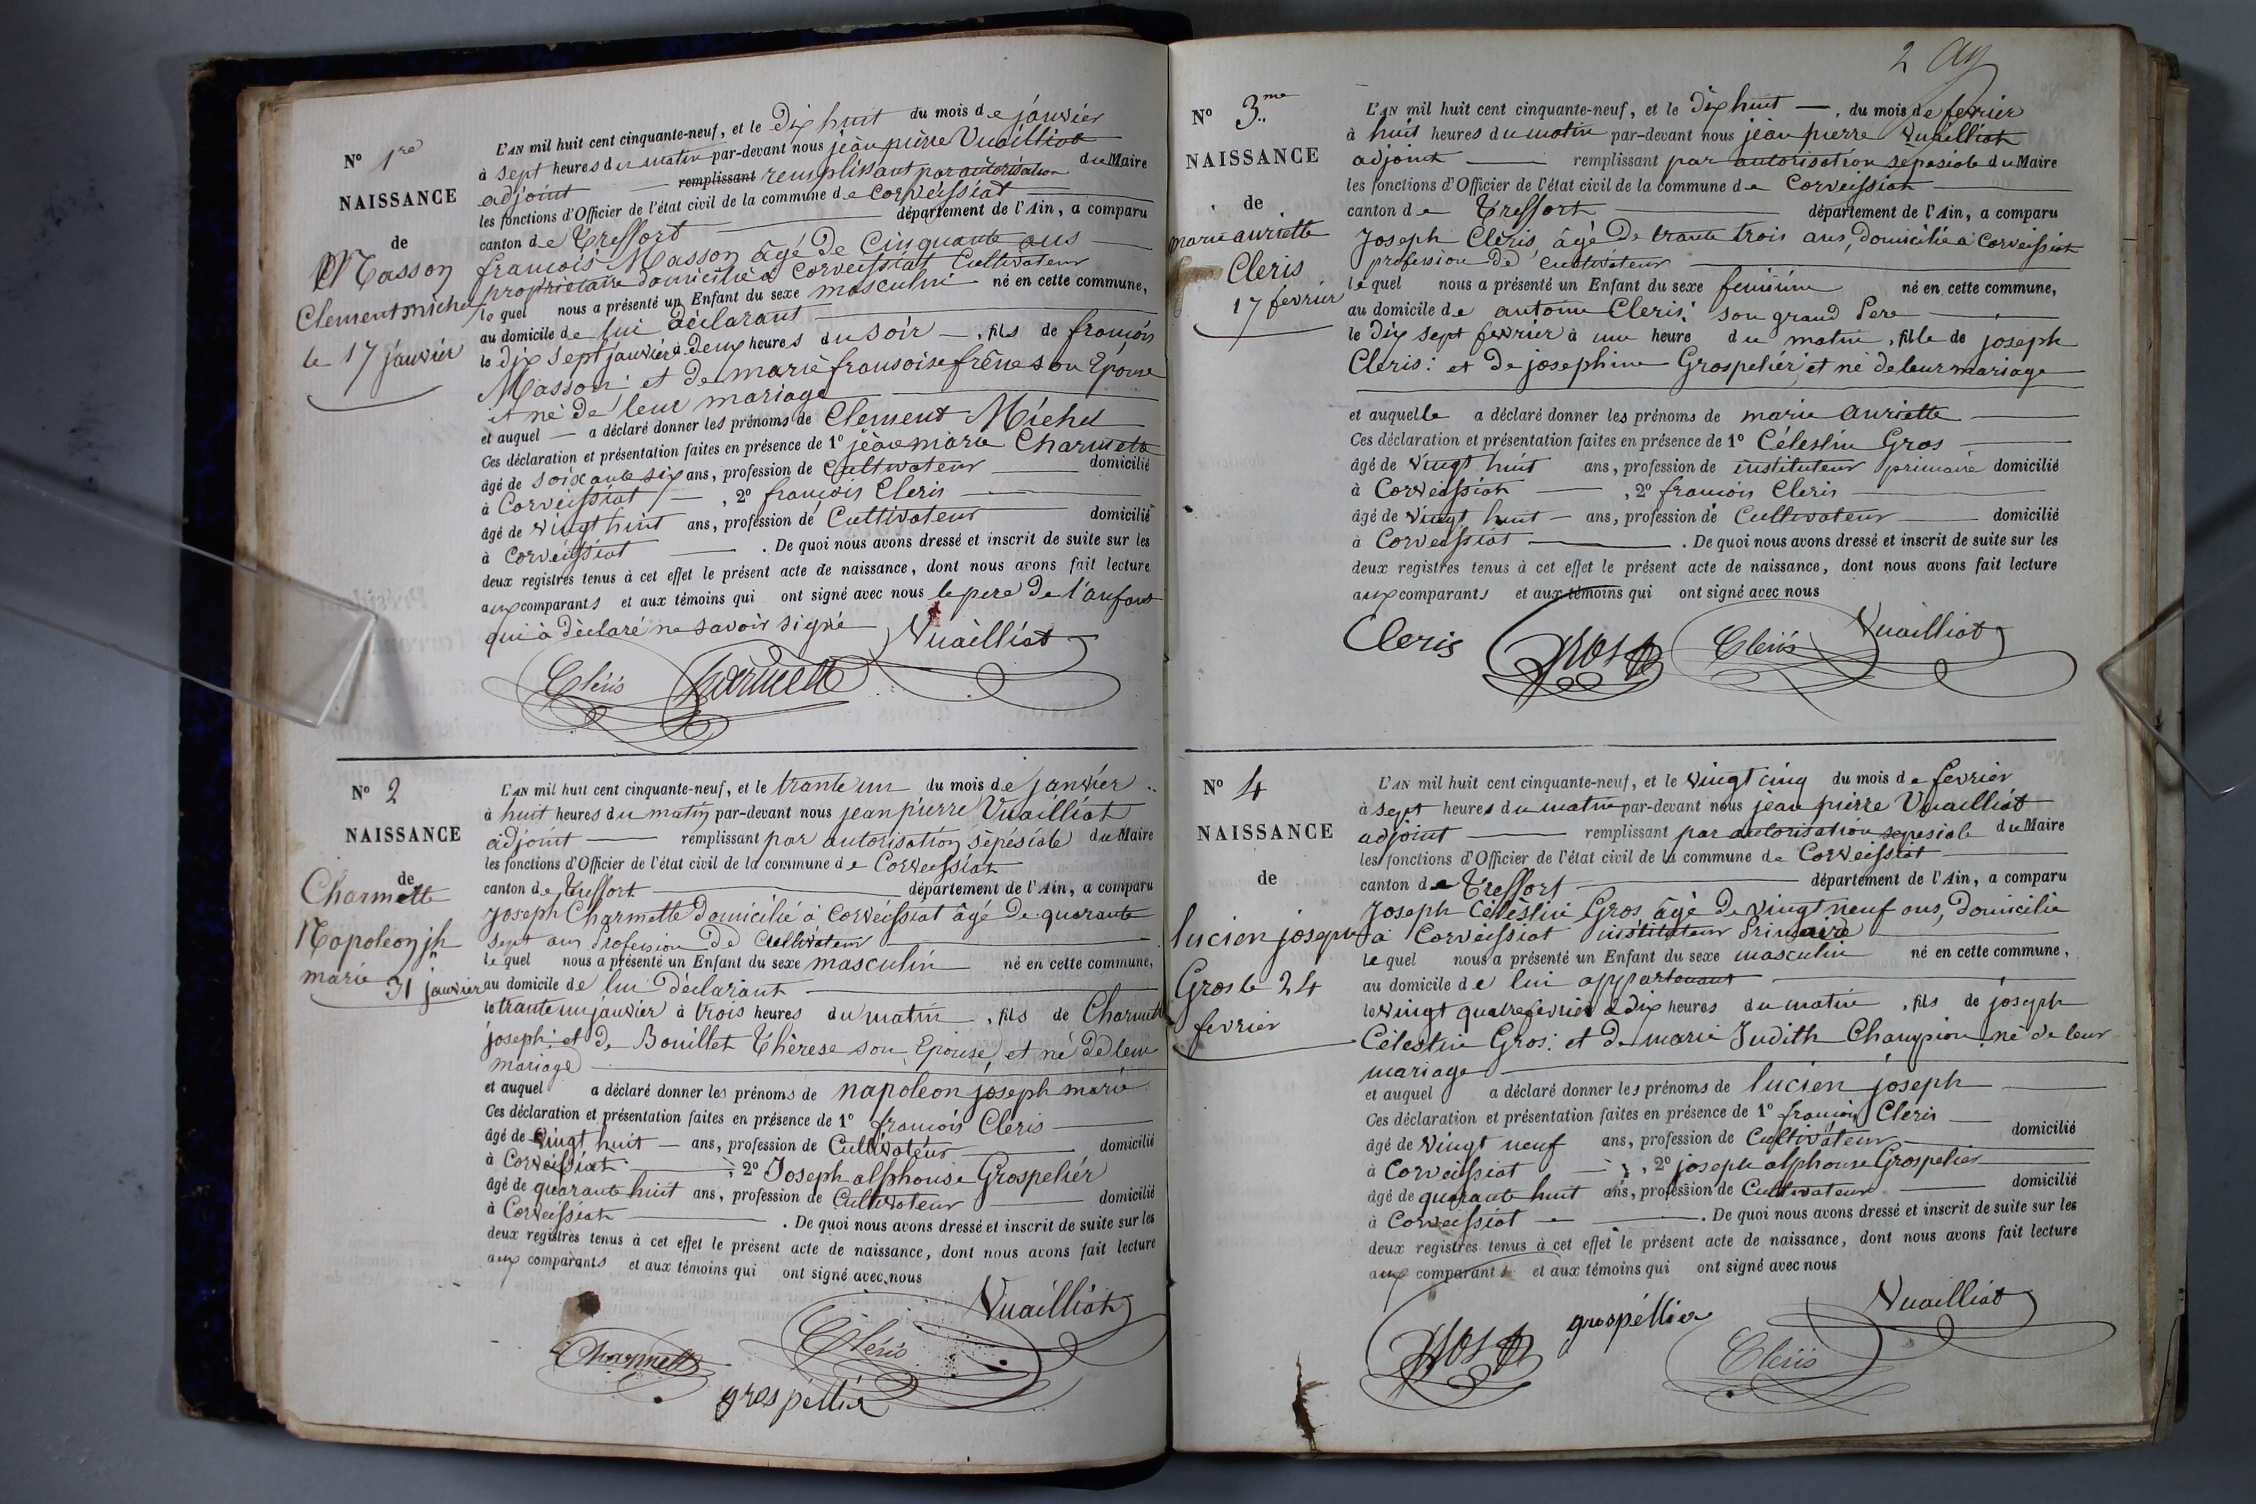 N° 1re
NAISSANCE
de
Masson
Clement michel
le 17 janvier
L'AN mil huit cent cinquante-neuf, et le dix huit du mois de janvier
à sept heures du matin par-devant nous jean pierre Vuailliat
adjoint — remplissant remplissant par autorisation du Maire
les fonctions d'Officier de l'état civil de la commune de Corveissiat
canton de Treffort département de l'Ain, a comparu
francois Masson âgé de Cinquante ans
proprietaire domicilié à Corveissiat Cultivateur
le quel nous a présenté un Enfant du sexe masculin né en cette commune,
au domicile de lui déclarant
le dix sept janvier à deux heures du soir, fils de francois
Masson et de marie fransoise frêne son Epouse
et né de leur mariage
et auquel — a déclaré donner les prénoms de Clement Michel
Ces déclaration et présentation faites en présence de 1° jean marie Charmette
âgé de soixante six ans, profession de Cultivateur domicilié
à Corveissiat, 2° francois Cleris
âgé de vingt huit ans, profession de Cultivateur domicilié
à Corveissiat. De quoi nous avons dressé et inscrit de suite sur les
deux registres tenus à cet effet le présent acte de naissance, dont nous avons fait lecture
aux comparants et aux témoins qui ont signé avec nous le pere de l'anfant
qui à déclaré ne savoir signé Vuailliat
Cléris Charmette
N° 2
NAISSANCE
de
Charmette
Napoleon jh
marie 31 janvier
L'AN mil huit cent cinquante-neuf, et le trante un du mois de janvier
à huit heures du matin par-devant nous jean pierre Vuailliat
adjoint — remplissant par autorisation sépésiale du Maire
les fonctions d'Officier de l'état civil de la commune de Corveissiat
canton de Treffort département de l'Ain, a comparu
Joseph Charmette Domicilié à Corveissiat âgé de quarante
sept ans Profession de Cultivateur
le quel nous a présenté un Enfant du sexe masculin né en cette commune,
au domicile de lui déclarant
le trante un janvier à trois heures du matin, fils de Charmette
joseph: et de Bouillet Thèrese son Epouse, et né de leur
mariage
et auquel a déclaré donner les prénoms de napoleon joseph marie
Ces déclaration et présentation faites en présence de 1° francois Cleris
âgé de vingt huit — ans, profession de Cultivateur domicilié
à Corveissiat, 2° Joseph alphonse Grospeliér
âgé de quarante huit ans, profession de Cultivateur domicilié
à Corveissiat. De quoi nous avons dressé et inscrit de suite sur les
deux registres tenus à cet effet le présent acte de naissance, dont nous avons fait lecture
aux comparants et aux témoins qui ont signé avec nous
Vuailliat
Charmette Cléris
grospéllier
2
N° 3me
NAISSANCE
de
marie auriette
Cleris
17 fevrier
L'AN mil huit cent cinquante-neuf, et le dix huit —, du mois de fevrier
à huit heures du matin par-devant nous jean pierre Vuailliat
adjoint — remplissant par autorisation sepesiale du Maire
les fonctions d'Officier de l'état civil de la commune de Corveissiat
canton de Treffort département de l'Ain, a comparu
Joseph Cleris, âgé de trante trois ans, Domicilié à Corveissiat
profession de Cultivateur
le quel nous a présenté un Enfant du sexe feminim né en cette commune,
au domicile de antoine Cleris: son grand Pere
le dix sept fevrier à une heure du matin, fille de joseph
Cleris: et de josephine Grospeliér et né de leur mariage
et auquelle a déclaré donner les prénoms de marie auriette
Ces déclaration et présentation faites en présence de 1° Célestin Gros
âgé de vingt huit ans, profession de instituteur primaire domicilié
à Corveissiat, 2° francois Cleris
âgé de vingt huit — ans, profession de Cultivateur domicilié
à Corveissiat. De quoi nous avons dressé et inscrit de suite sur les
deux registres tenus à cet effet le présent acte de naissance, dont nous avons fait lecture
aux comparants et aux témoins qui ont signé avec nous
Cleris Gros Cléris Vuailliat
N° 4
NAISSANCE
de
lucien joseph
Gros le 24
fevrier
L'AN mil huit cent cinquante-neuf, et le vingt cinq du mois de fevrier
à sept heures du matin par-devant nous jean pierre Vuailliat
adjoint — remplissant par autorisation sepesiale du Maire
les fonctions d'Officier de l'état civil de la commune de Corveissiat
canton de Treffort département de l'Ain, a comparu
Joseph Célèstin Gros, âgé de vingt neuf ans, Domicilié
à Corveissiat instituteur Primaire
le quel nous a présenté un Enfant du sexe masculin né en cette commune,
au domicile de lui appartenant
le vingt quatre fevrier à dix heures du matin, fils de joseph
Célestin Gros: et de marie Judith Champion né de leur
mariage
et auquel a déclaré donner les prénoms de lucien joseph
Ces déclaration et présentation faites en présence de 1° francois Cleris
âgé de vingt neuf ans, profession de Cultivateur domicilié
à Corveissiat, 2° joseph alphonse Grospelier
âgé de quarante huit ans, profession de Cultivateur domicilié
à Corveissiat. De quoi nous avons dressé et inscrit de suite sur les
deux registres tenus à cet effet le présent acte de naissance, dont nous avons fait lecture
aux comparants et aux témoins qui ont signé avec nous
Gros grospéllier Cléris Vuailliat